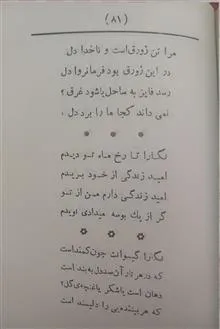 (۸۱)
مرا تن زورق است و ناخدا دل
در این زورق بود فرمانروا دل
رسد فایز به ساحل یا شود غرق؟
نمی داند کجا ما را برد دل،
* * *
نگارا تا رخ ماه تو دیدم
امید زندگی از خود بریدم
امید زندگی دارم من از نو
گر از یك بوسه میدادی نویدم
* * *
نگارا گیسوانت چون کمنداست
که در هر تار آن صد دل به بند است
دهان است یا شکر یا غنچهٔ گل؟
که هر بیننده یی را دلپسند است